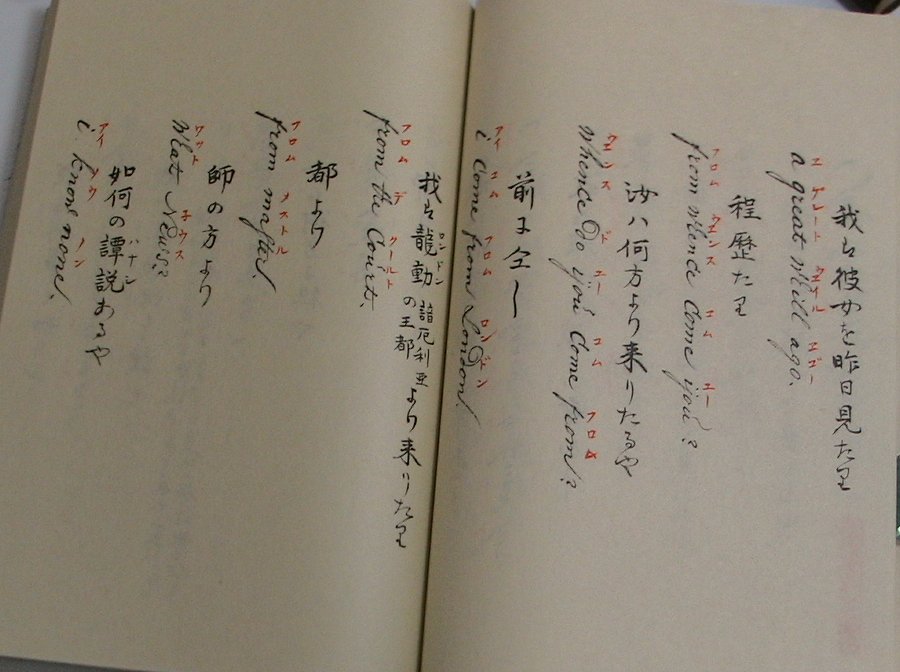 我ハ彼女を昨日見たり
エ ゲレート ウェイル エゴー
a great whill ago.
程歴たり
フロム ウエンス コム ユー
from whence come you?
汝ハ何方より来りたるや
ウエンス ド ユー コム フロム
whence Do you Come from?
前に仝し
アイ コム フロム ロンドン
i Come from London.
ロンドン
我ハ龍動 諳厄利亜の王都 より来りたり
フロム デ コールト
from the Court.
都より
フロム メストル
from master
師の方より
ワット ネウス
What News?
ハナシ
如何の譚説あるや
アイ ノウ ノン
i know none.